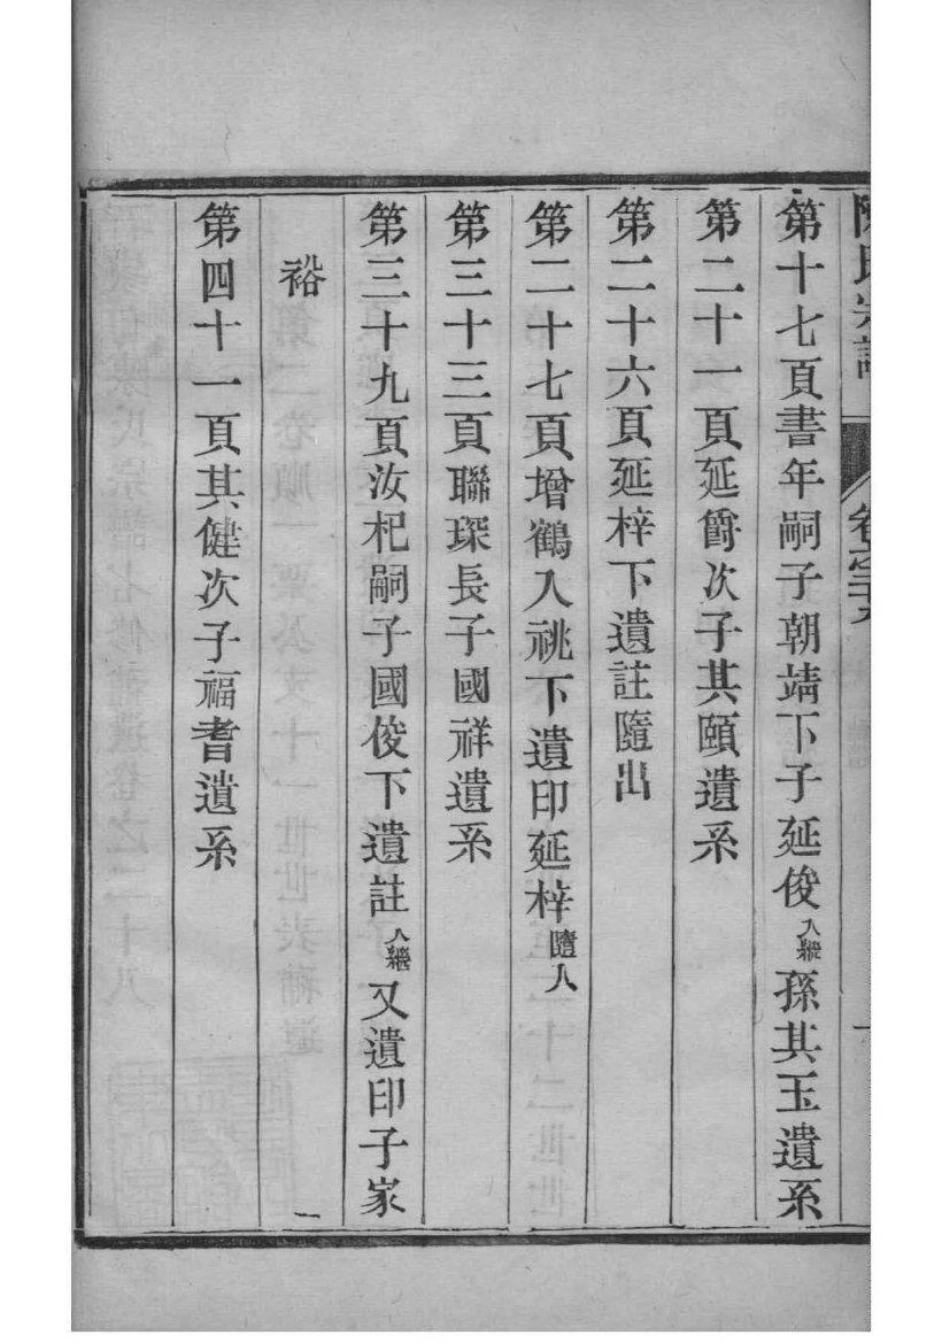 陳氏宗譜
第十七頁書年嗣子朝靖下子延俊入繼孫其玉遺系
第二十一頁延爵次子其頤遺系
第二十六頁延梓下遺註隨出
第二十七頁增鶴入祧下遺印延梓隨入
第三十三頁聯琛長子國祥遺系
第三十九頁汝杞嗣子國俊下遺註入繼又遺印子家
裕
第四十一頁其健次子福耆遺系